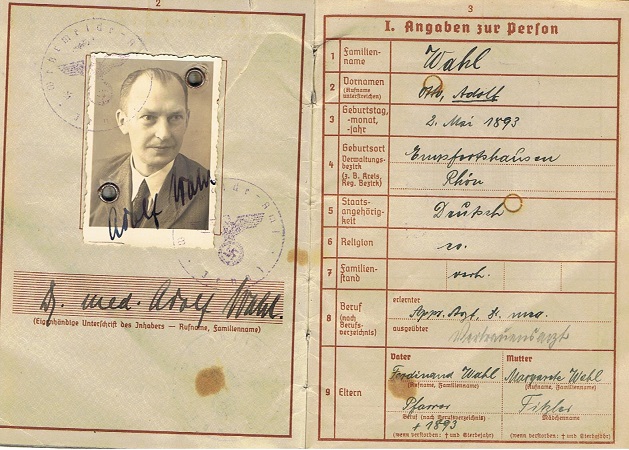 2
Adolf Wahl
Dr. med. Adolf Wahl.
(Eigenhändige Unterschrift des Inhabers — Rufname, Familienname)
3
I. Angaben zur Person
1 Familien-
name
Wahl
2 Vornamen
(Rufname
unterstreichen)
Otto, Adolf
3 Geburtstag,
-monat,
-jahr
2. Mai 1893
4 Geburtsort
Verwaltungs-
bezirk
(z. B. Kreis,
Reg. Bezirk)
Empfertshausen
Rhön
5 Staats-
angehörig-
keit
Deutsch
6 Religion
ev.
7 Familien-
stand
verh.
8 Beruf
(nach
Berufs-
verzeichnis)
erlernter
App. Arzt, Dr. med.
ausgeübter
Vertrauensarzt
9 Eltern
Vater
Ferdinand Wahl
(Rufname, Familienname)
Pfarrer
Beruf (nach Berufsverzeichnis)
† 1893
(wenn verstorben: † und Sterbejahr)
Mutter
Margarete Wahl
(Rufname, Familienname)
Mädchenname
(wenn verstorben: † und Sterbejahr)